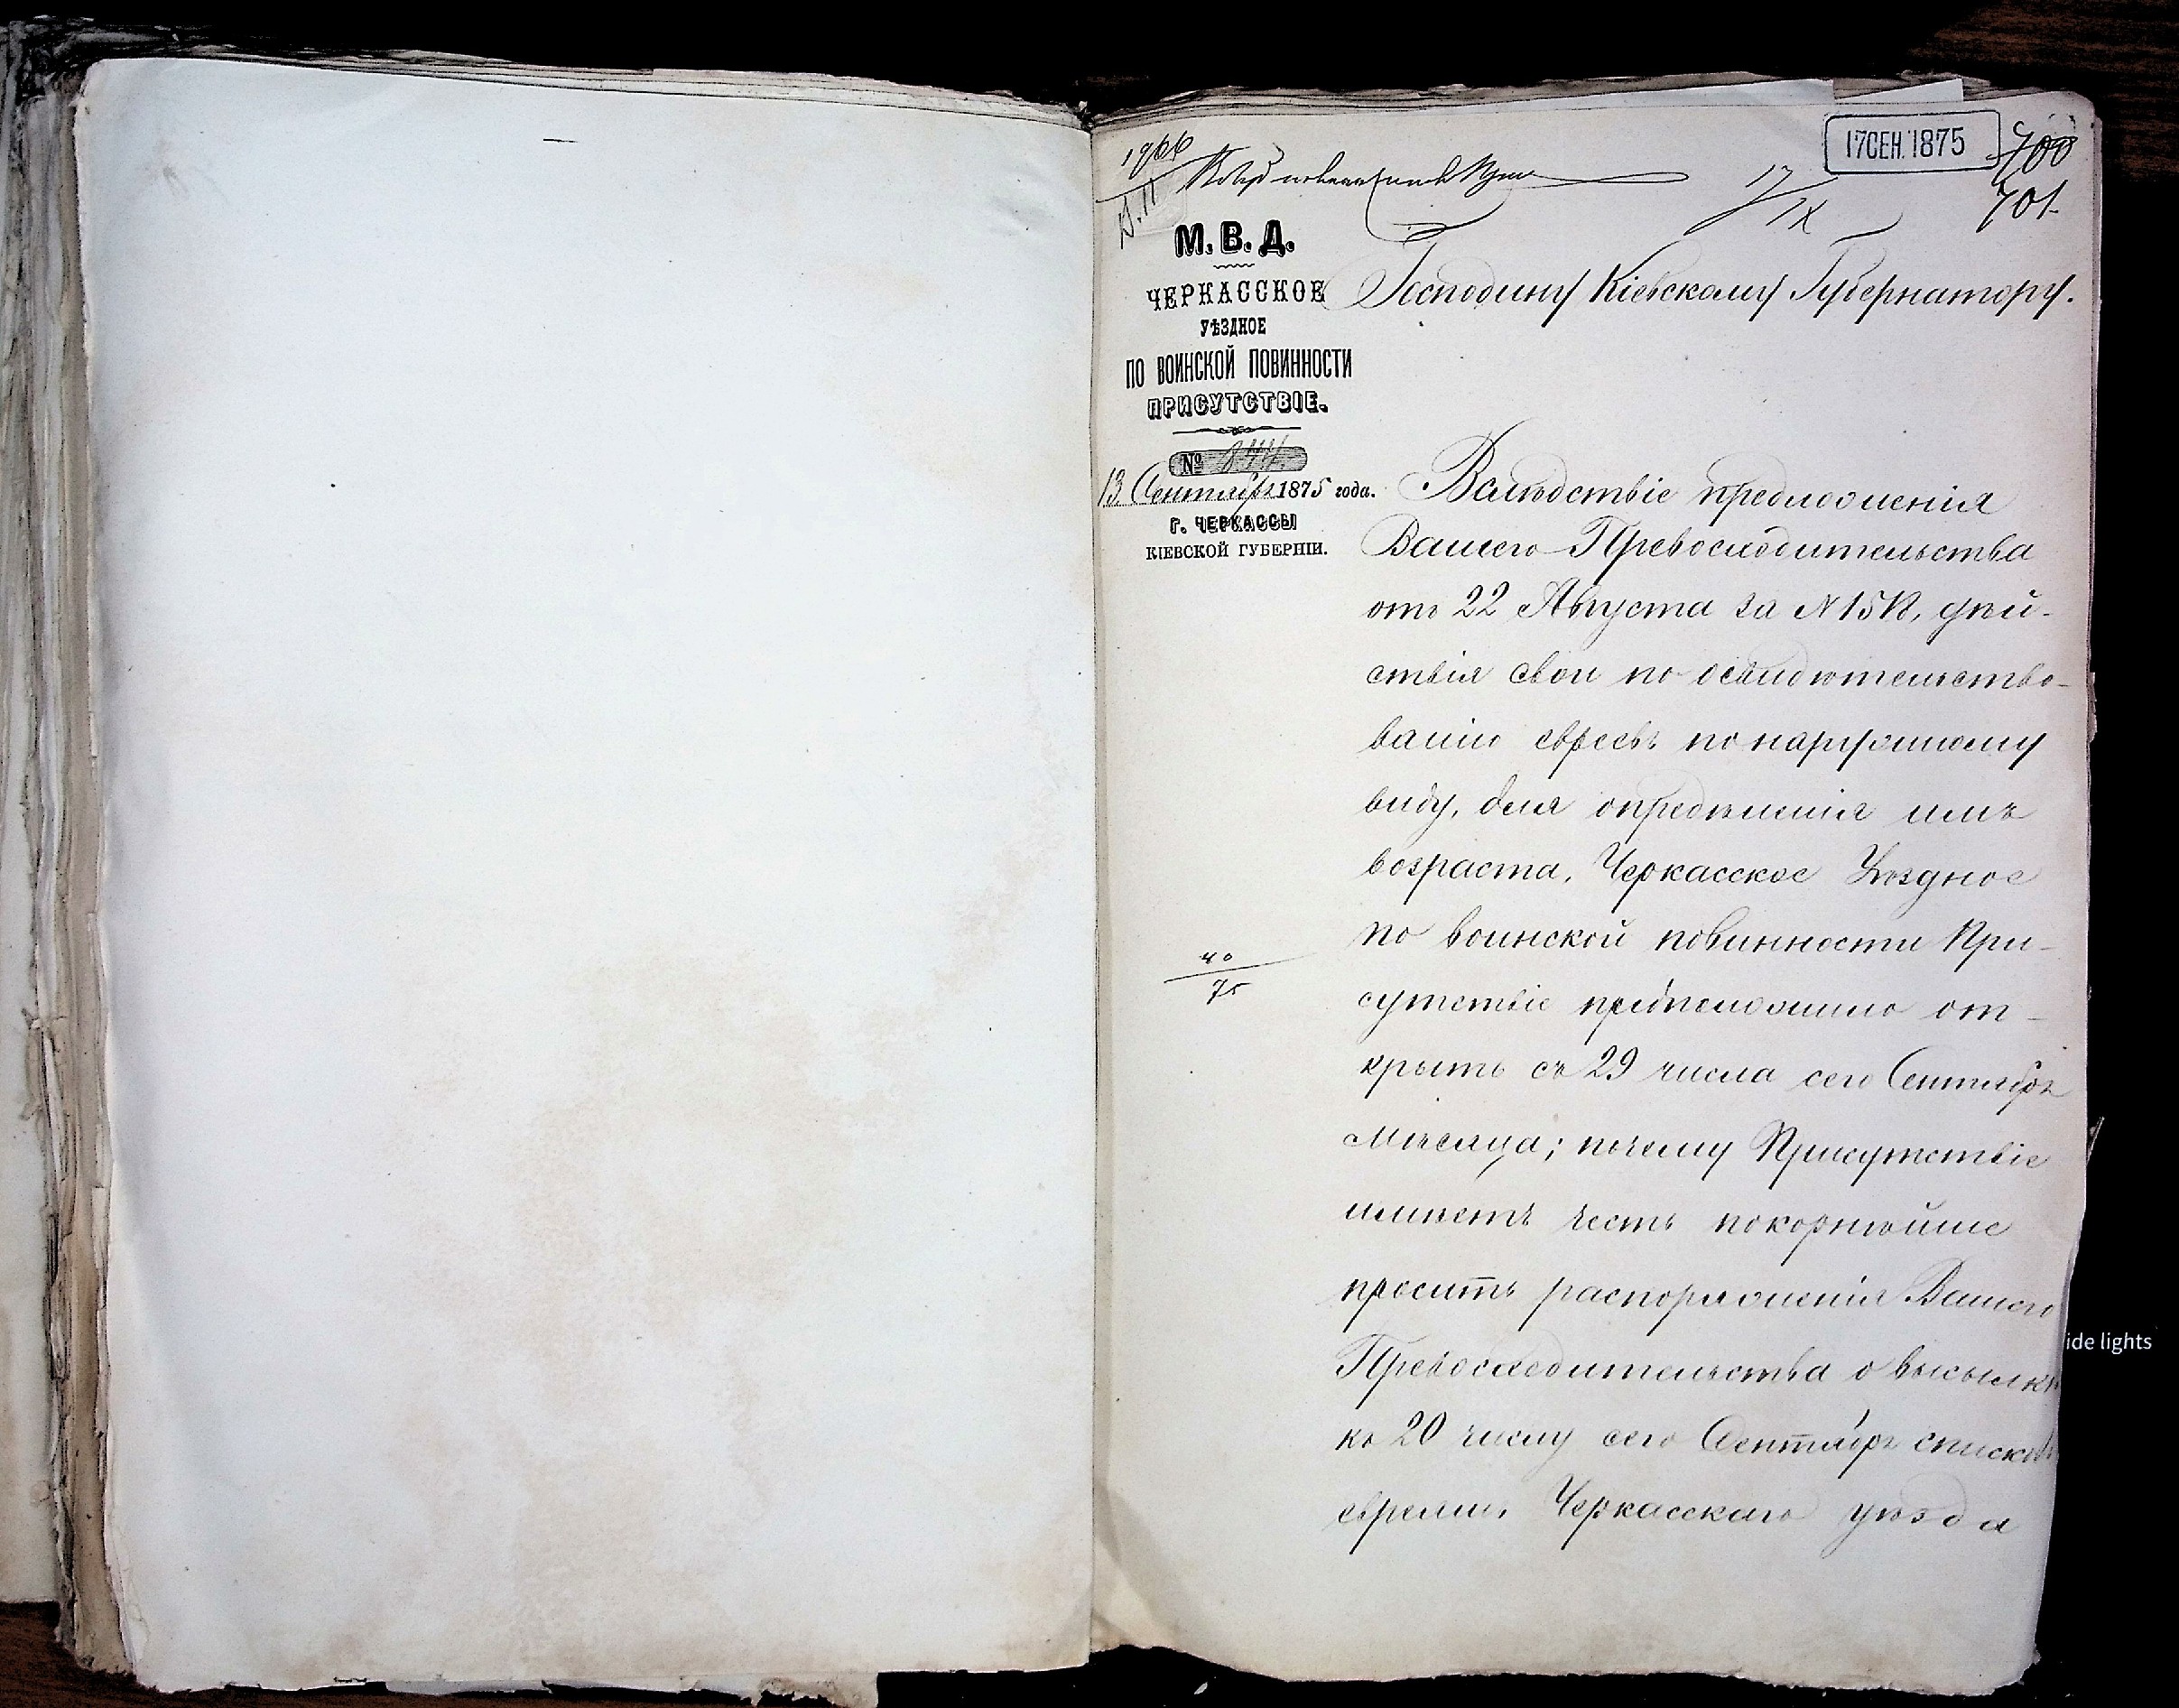 17 СЕН. 1875
700
701.
1966
17/IX
М. В. Д.
ЧЕРКАССКОЕ
УѢЗДНОЕ
ПО ВОИНСКОЙ ПОВИННОСТИ
ПРИСУТСТВІЕ.
№ 844.
13 Сентября 1875 года.
Г. ЧЕРКАССЫ
КІЕВСКОЙ ГУБЕРНІИ.
Господину Кіевскому Губернатору.
Вслѣдствіе предложенія
Вашего Превосходительства
отъ 22 Августа за №, дѣй-
ствія свои по освидѣтельство-
ванію евреевъ по наружному
виду, для опредѣленія имъ
возраста, Черкасское Уѣздное
по воинской повинности При-
сутствіе предположило от-
крыть съ 29 числа сего Сентября
мѣсяца; почему Присутствіе
имѣетъ честь покорнѣйше
просить распоряженія Вашего
Превосходительства о высылкѣ
къ 20 числу сего Сентября списковъ
евреямъ Черкасскаго уѣзда
40/75
ide lights